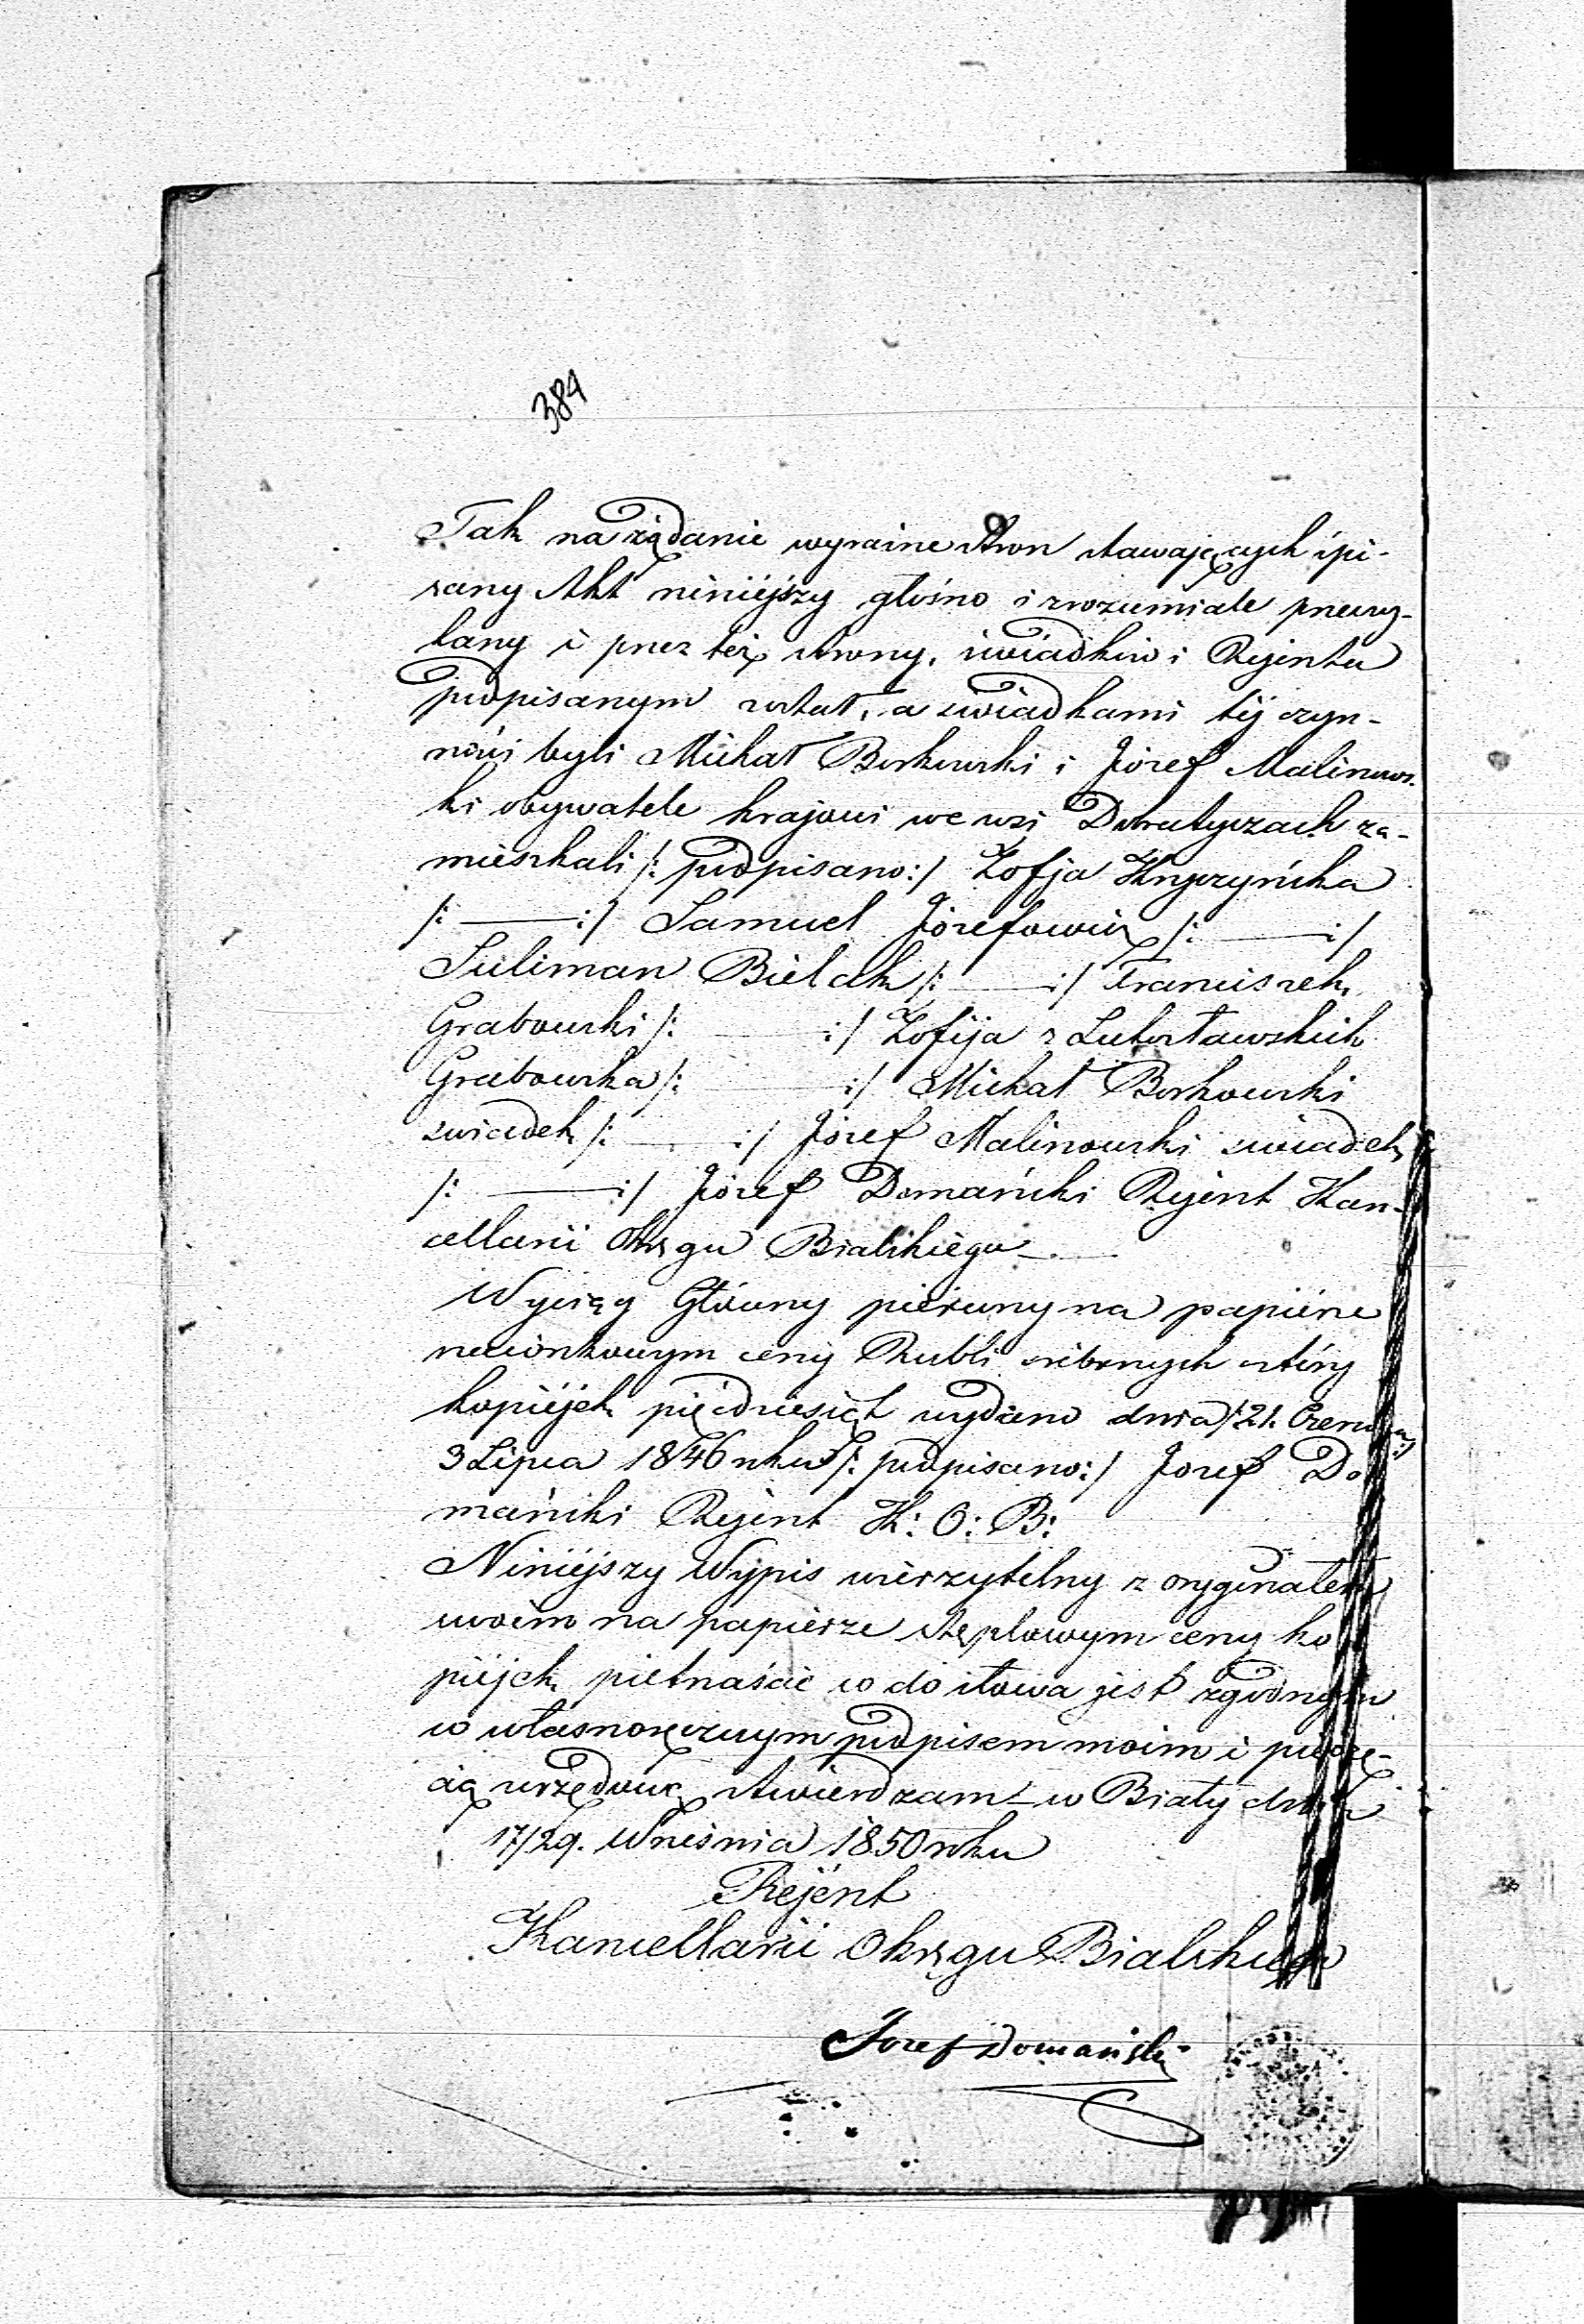 384
Tak na żądanie wyraźne stron stawających spi-
sany Akt niniéjszy głośno i zrozumiale przeczy-
tany i przez też strony, świadków i Rejenta
podpisanym został, a świadkami téj czyn-
ności byli Michał Borkowski i Józef Malinows-
ki obywatele krajowi we wsi Dobratyczach za-
mieszkali /: podpisano :/ Zofja Kryczyńska
/: — :/ Samuel Józefowicz /: — :/
Suliman Bielak /: — :/ Franciszek
Grabowski /: — :/ Zofija z Lutosławskich
Grabowska /: — :/ Michał Borkowski
świadek /: — :/ Józef Malinowski świadek
/: — :/ Józef Domański Rejent Kan-
cellarii Okręgu Bialskiego —
Wyciąg Główny piérwszy na papiérze
ceny Rubli srebrnych cztéry
kopiéjek pięćdziesiąt wydano dnia /: 21. Czerwca :/
3 Lipca 1846 roku /: podpisano :/ Jozef Do
mański Rejént K: O: B:
Niniéjszy Wypis wierzytelny z oryginałem
swoim na papiérze stęplowym ceny ko
piéjek pietnaście co do słowa jest zgodnym
co własnoręcznym podpisem moim i pieczę-
cią urzędową stwierdzam — w Biały dnia
17/29. Września 1850 roku
Rejént
Kancellarii Okręgu Bialskiego
Jozef Domański